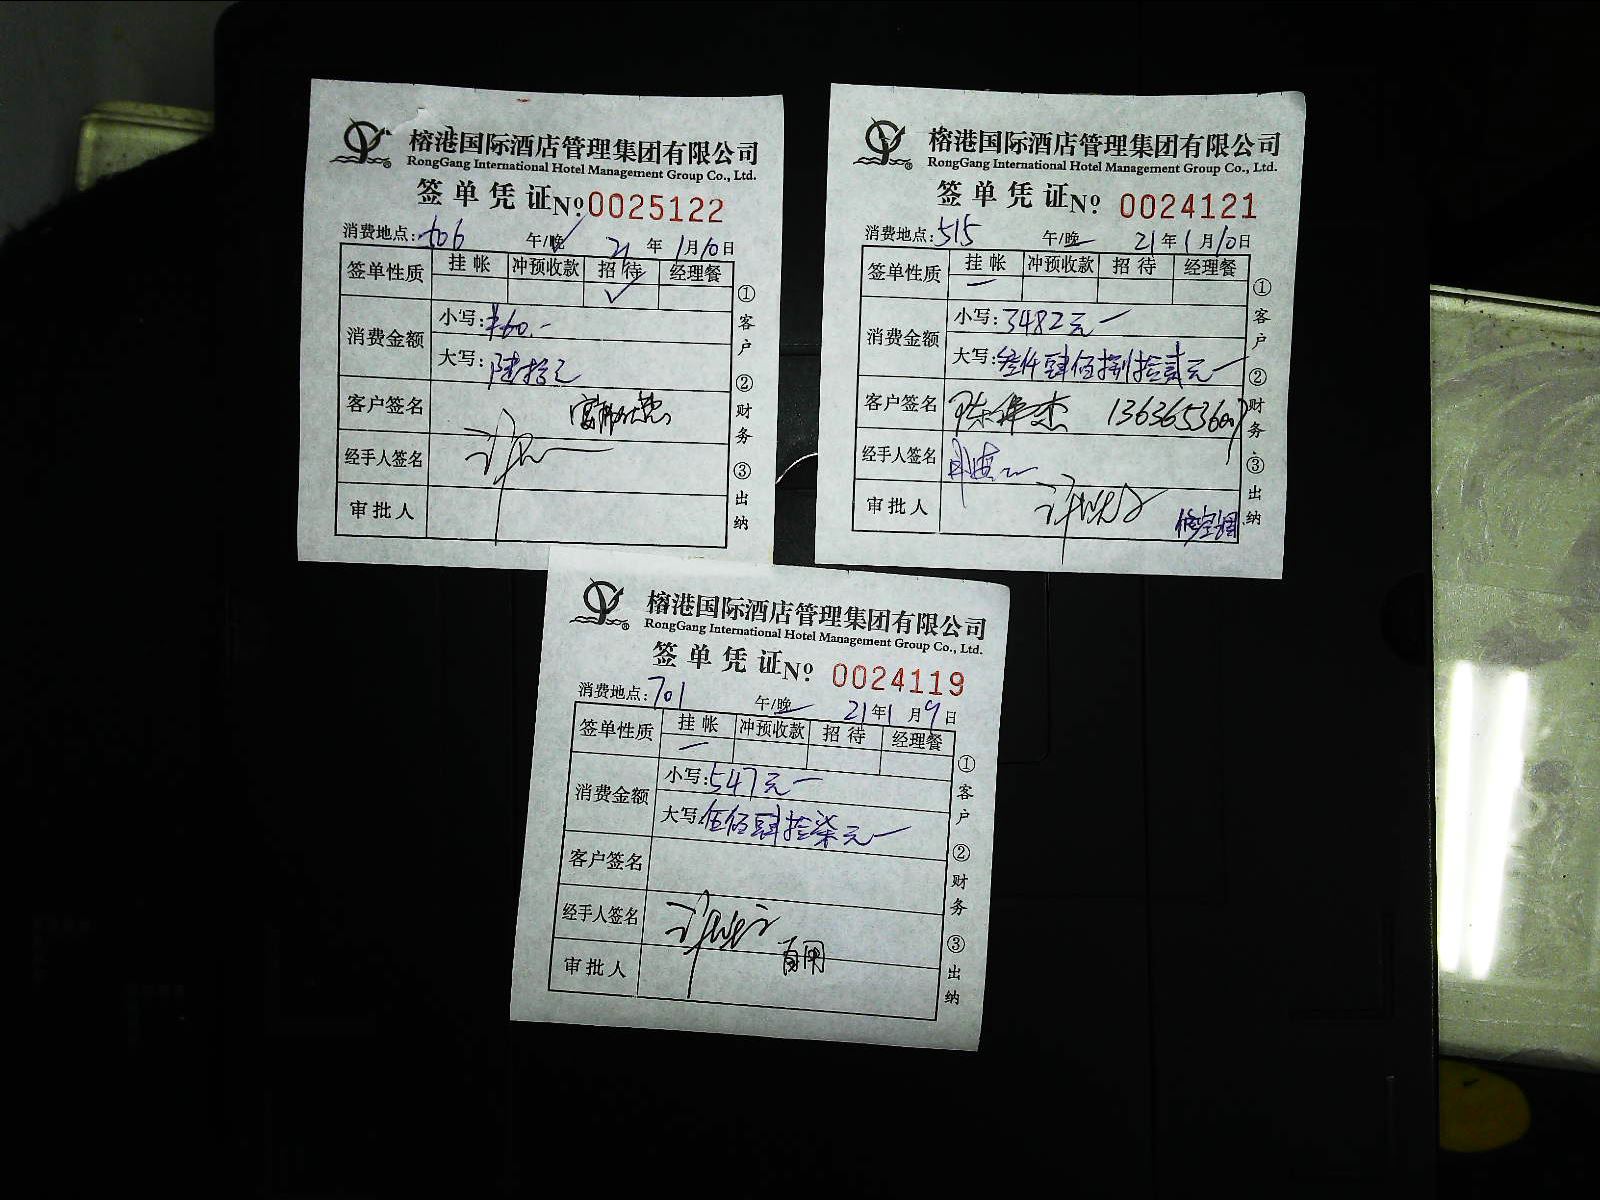 榕港国际酒店管理集团有限公司
RongGang International Hotel Management Group Co., Ltd.
签单凭证 Nº 0025122
消费地点: 606 午/晚 21年1月10日
签单性质 挂帐 冲预收款 招待 经理餐
✓
消费金额 小写: ¥60.-
大写: 陆拾元
客户签名
经手人签名
审批人
①客户 ②财务 ③出纳
榕港国际酒店管理集团有限公司
RongGang International Hotel Management Group Co., Ltd.
签单凭证 Nº 0024121
消费地点: 515 午/晚 21年1月10日
签单性质 挂帐 冲预收款 招待 经理餐
消费金额 小写: 3482元
大写: 叁仟肆佰捌拾贰元
客户签名 陈伟杰
经手人签名
审批人 修空调
①客户 ②财务 ③出纳
榕港国际酒店管理集团有限公司
RongGang International Hotel Management Group Co., Ltd.
签单凭证 Nº 0024119
消费地点: 701 午/晚 21年1月9日
签单性质 挂帐 冲预收款 招待 经理餐
消费金额 小写: 547元
大写: 伍佰肆拾柒元
客户签名
经手人签名
审批人
①客户 ②财务 ③出纳